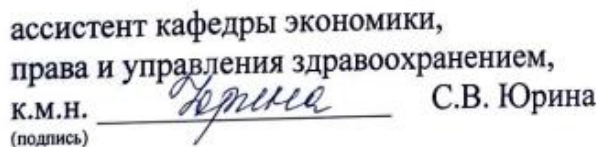 ассистент кафедры экономики,
права и управления здравоохранением,
к.м.н. Юрина С.В. Юрина
(подпись)